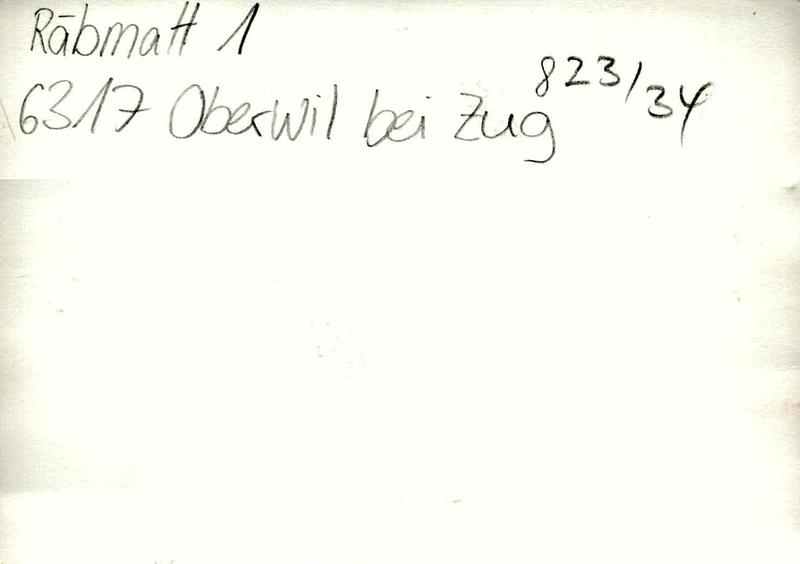 Räbmatt 1
6317 Oberwil bei Zug
823/34